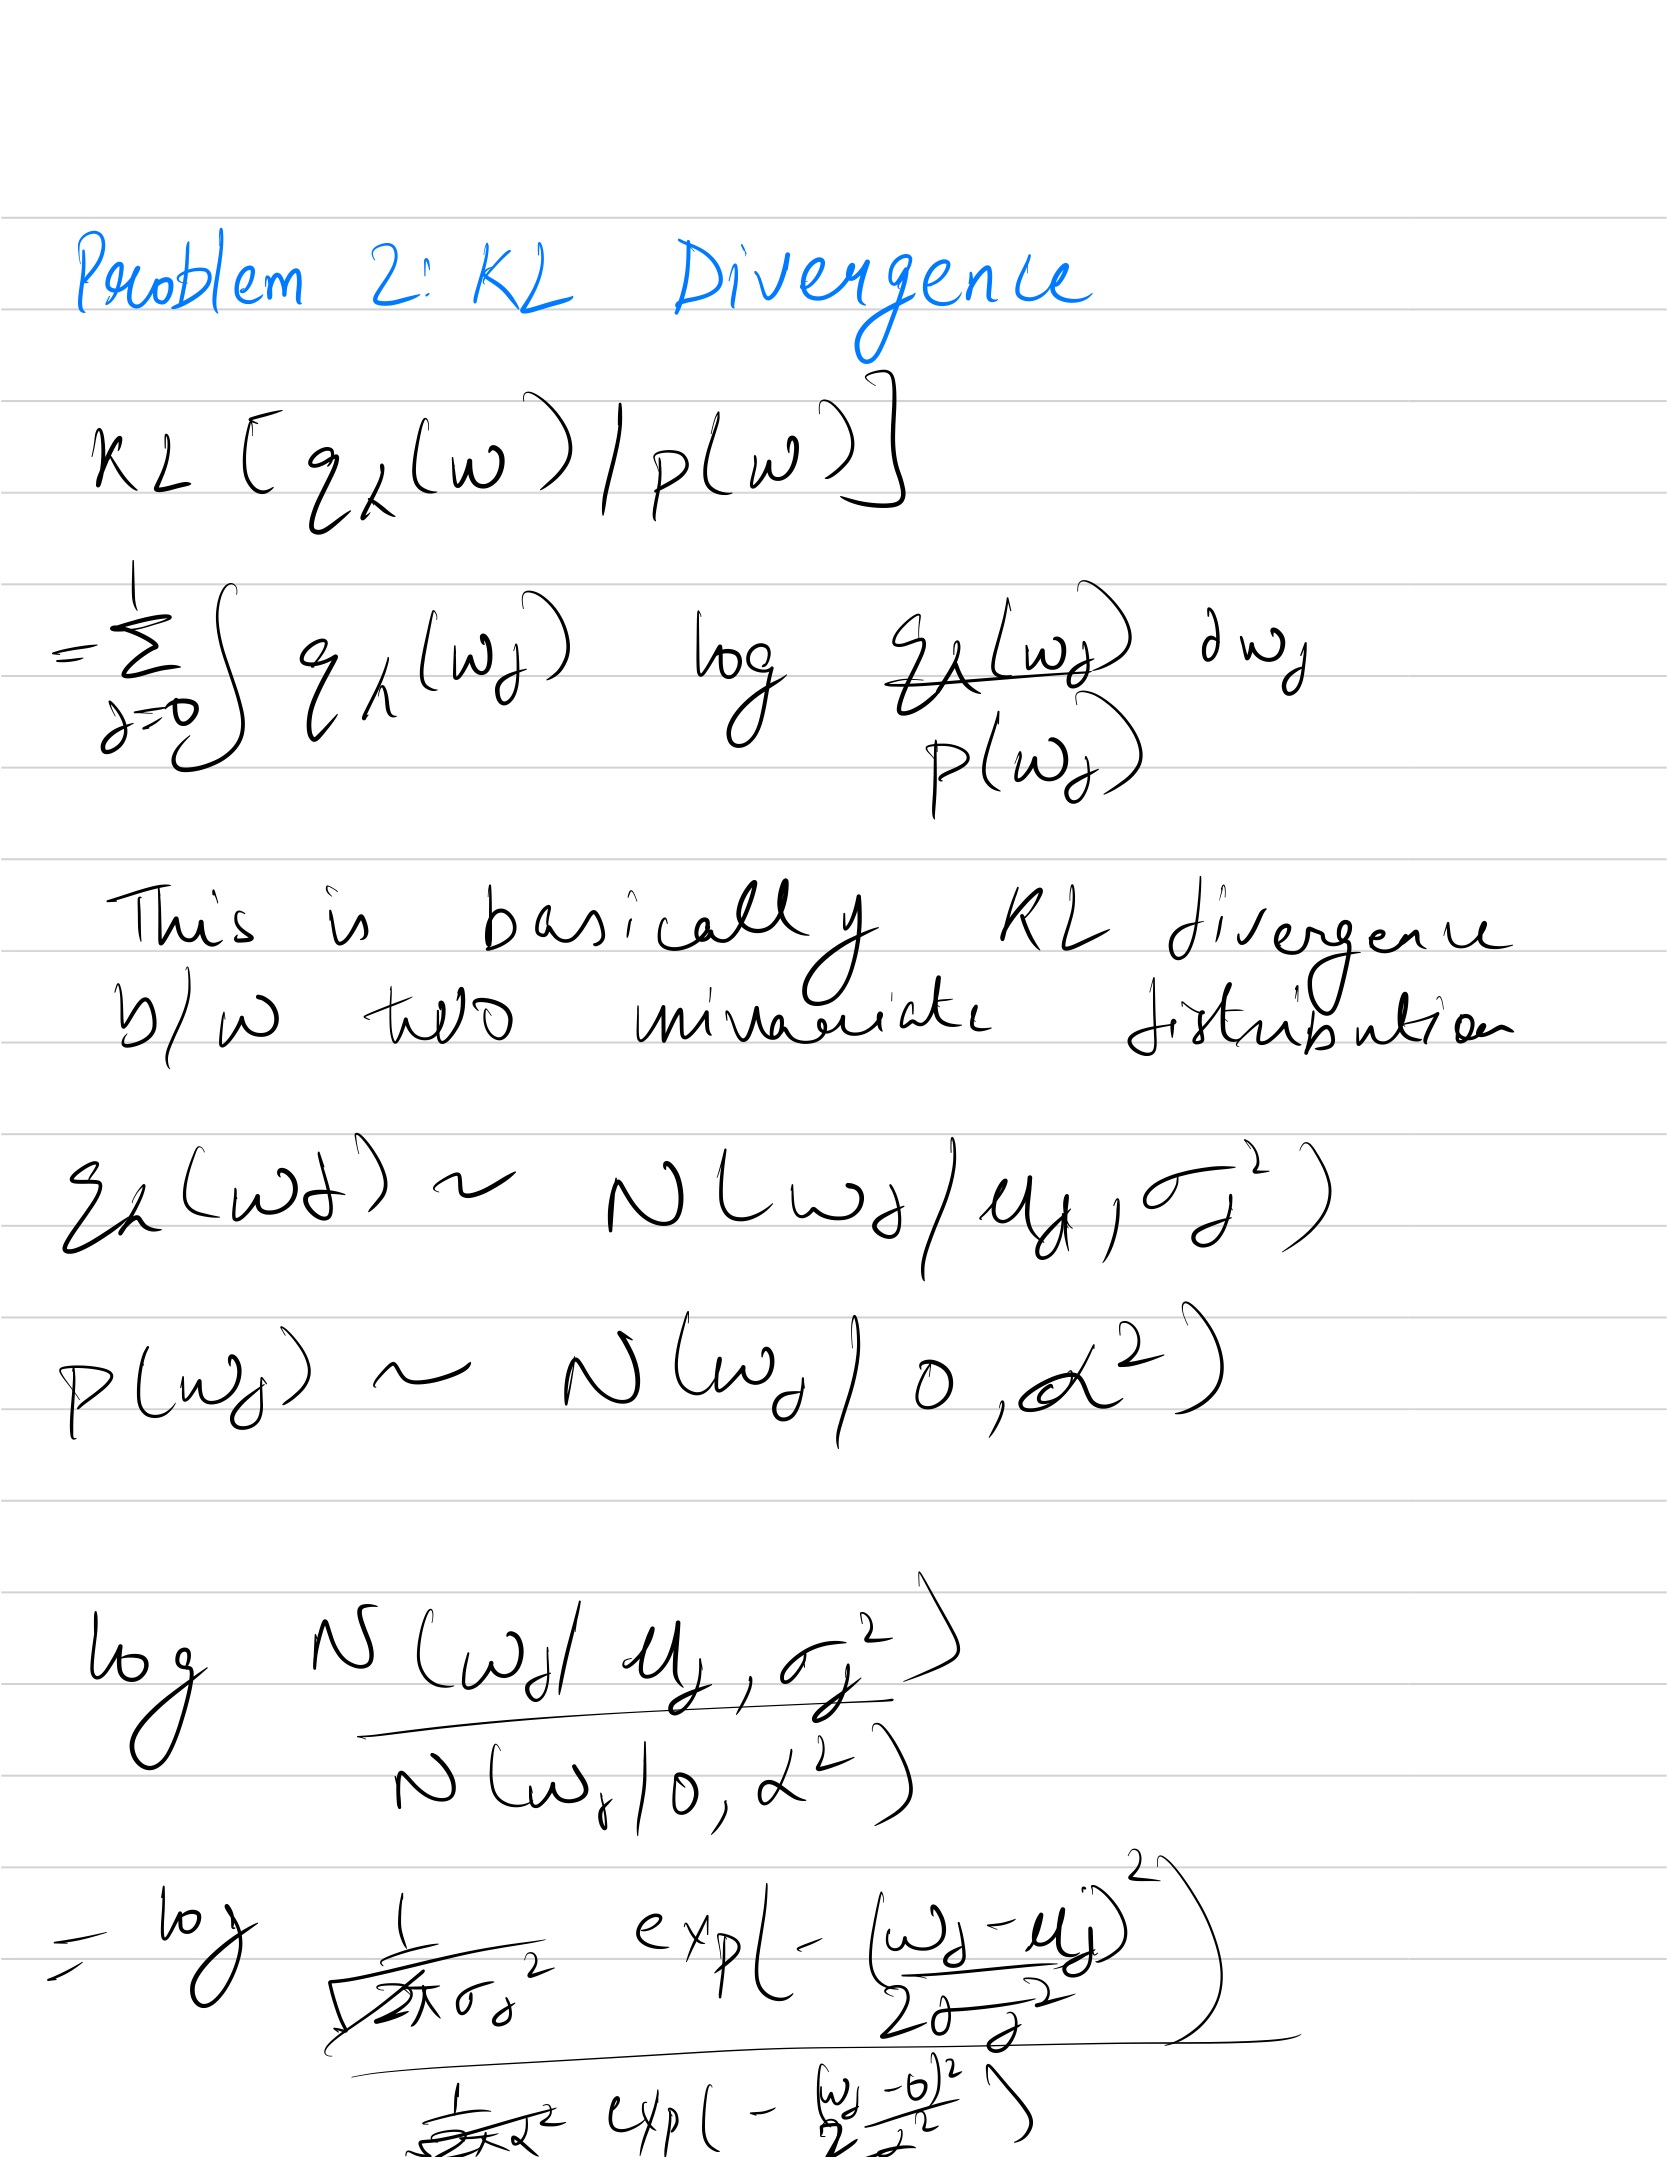 Problem 2: KL Divergence
KL [q_λ(w) / p(w)]
= Σ_{j=0}^{1} ∫ q_λ(w_j) log q_λ(w_j) / p(w_j) dw_j
This is basically KL divergence
b/w two univariate distribution
q_λ(w_j) ~ N(w_j / μ_j, σ_j²)
p(w_j) ~ N(w_j / 0, α²)
log N(w_j / μ_j, σ_j²)
N(w_j / 0, α²)
= log 1/√(2πσ_j²) exp(- (w_j - μ_j)² / 2σ_j²)
1/√(2πα²) exp(- (w_j - 0)² / 2α²)